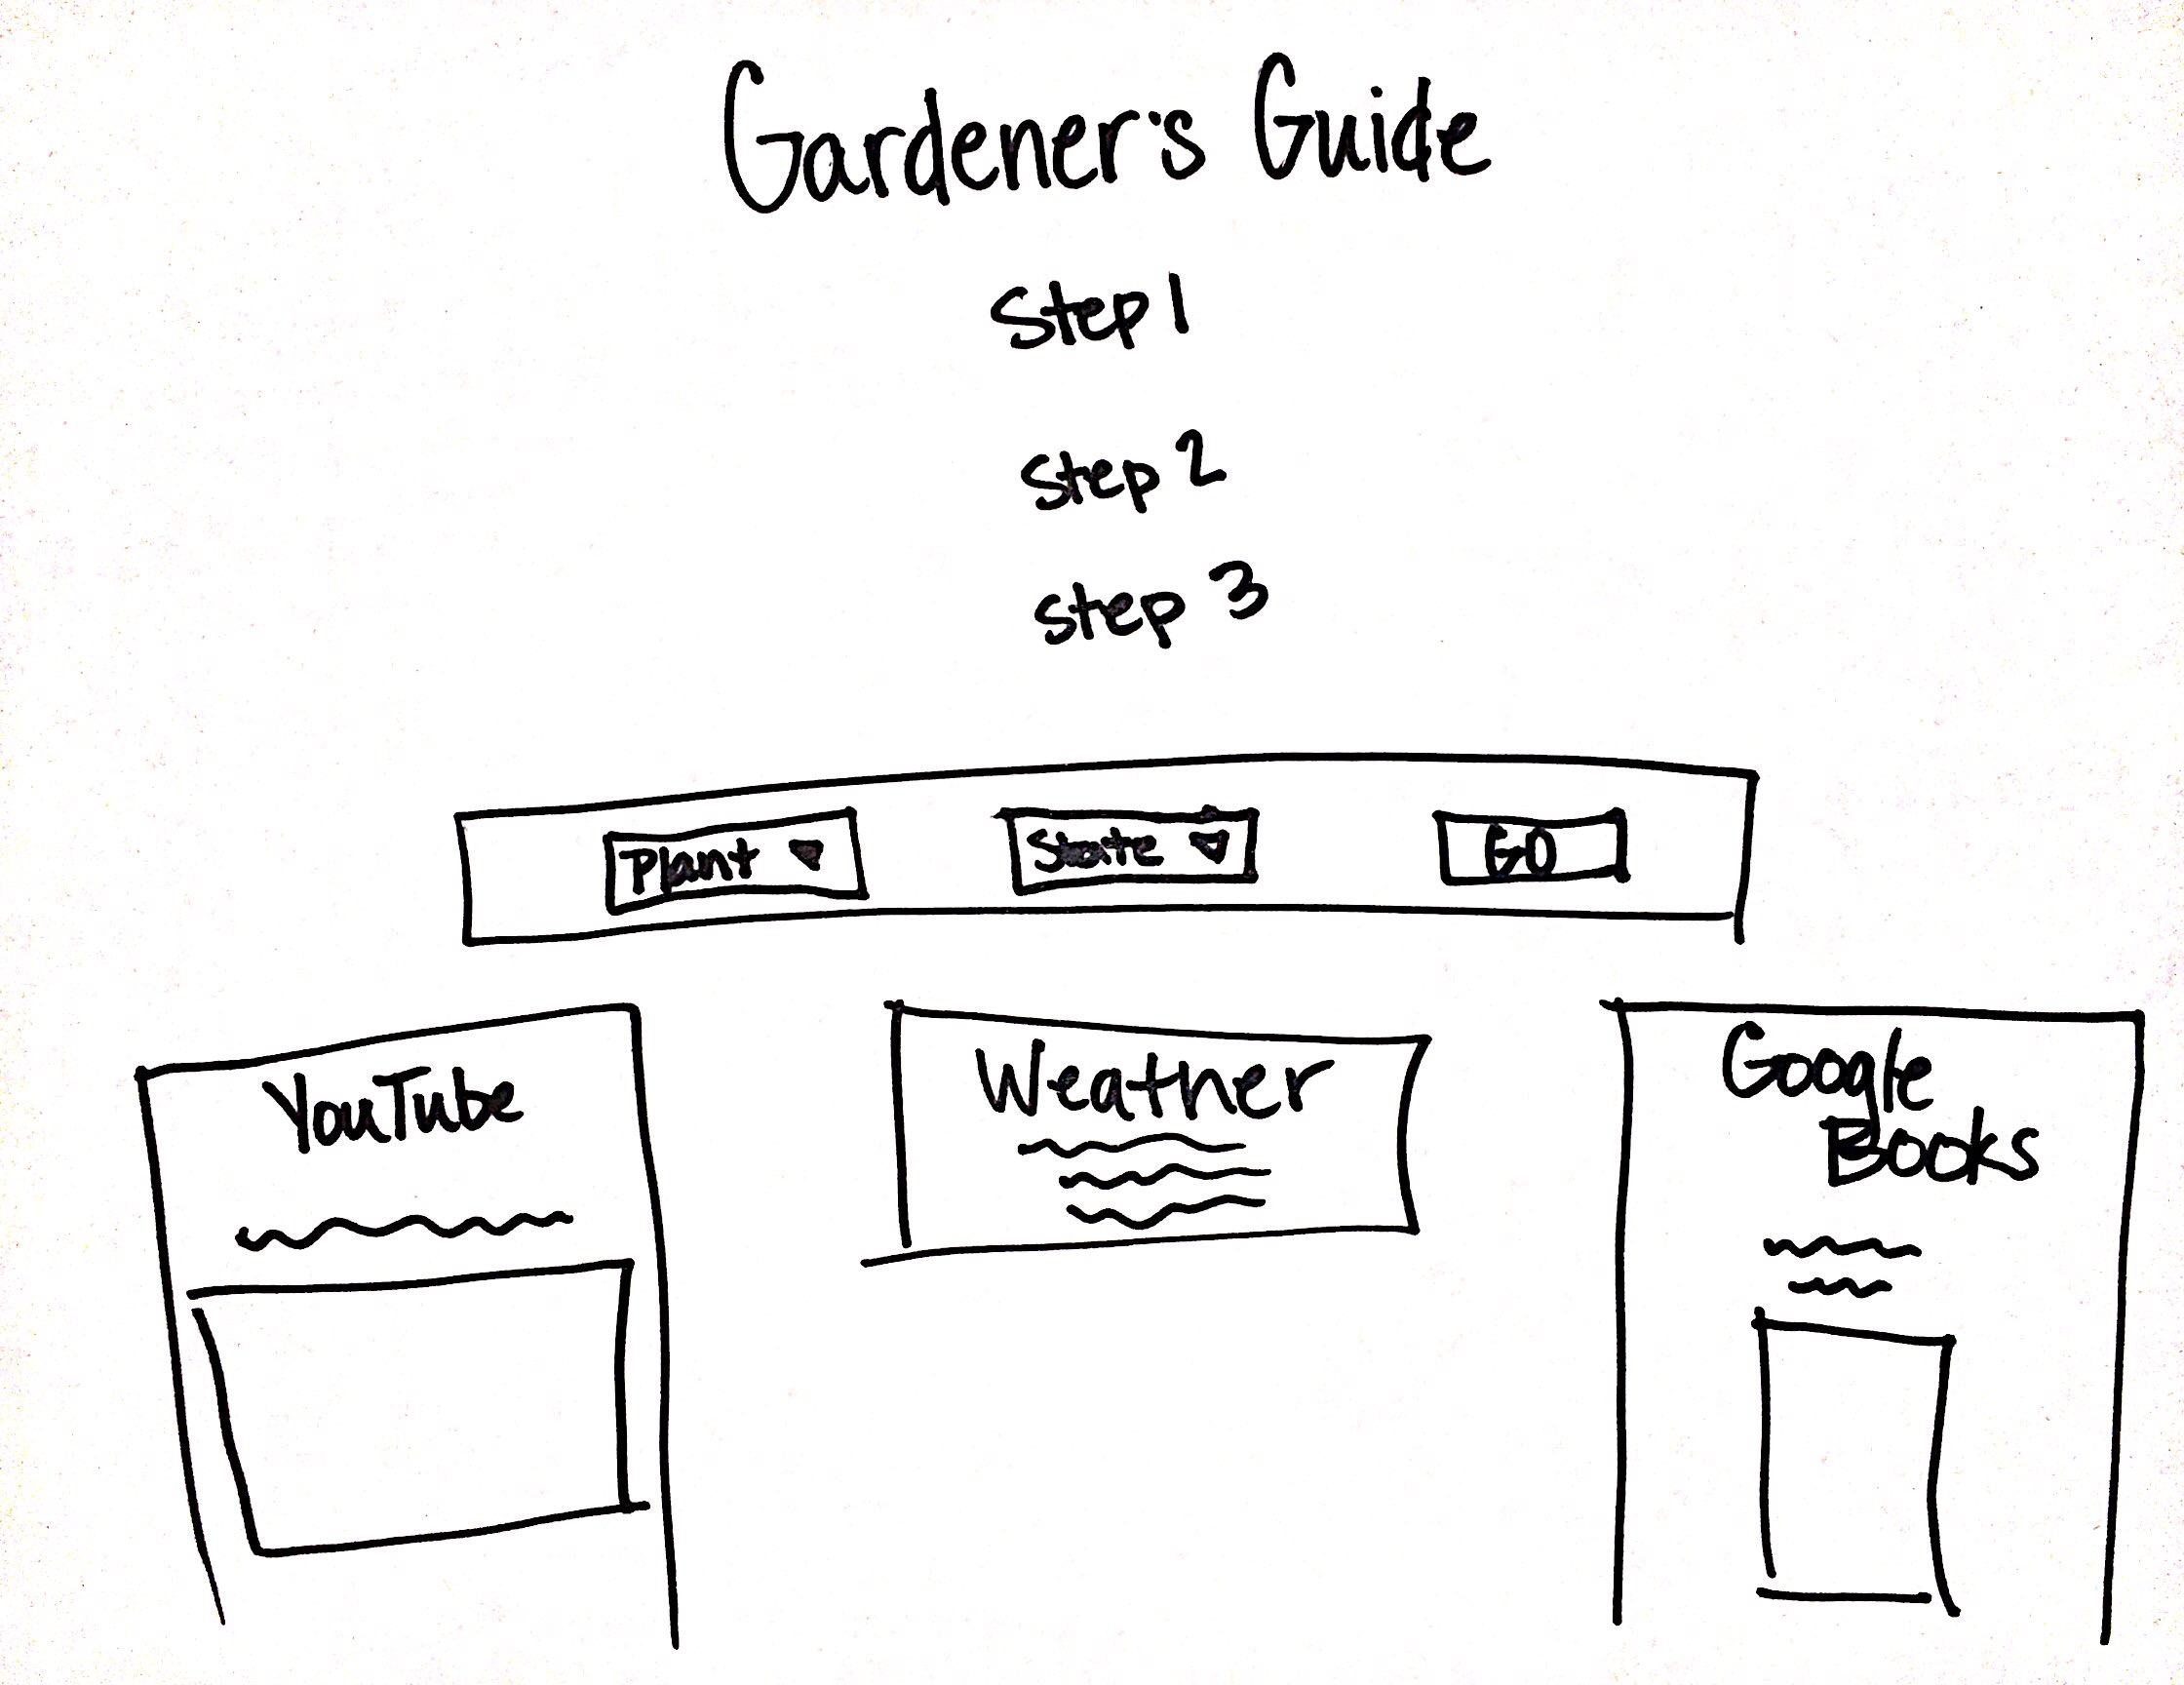 Gardener's Guide
Step 1
Step 2
Step 3
Plant
State
GO
YouTube
Weather
Google
Books